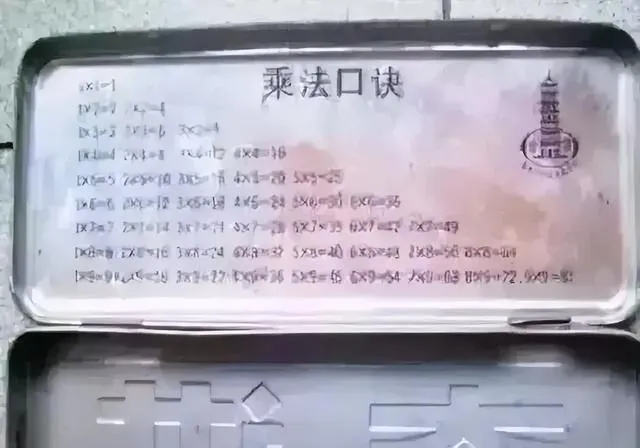 乘法口诀
1×1=1
1×2=2 2×2=4
1×3=3 2×3=6 3×3=9
1×4=4 2×4=8 3×4=12 4×4=16
1×5=5 2×5=10 3×5=15 4×5=20 5×5=25
1×6=6 2×6=12 3×6=18 4×6=24 5×6=30 6×6=36
1×7=7 2×7=14 3×7=21 4×7=28 5×7=35 6×7=42 7×7=49
1×8=8 2×8=16 3×8=24 4×8=32 5×8=40 6×8=48 7×8=56 8×8=64
1×9=9 2×9=18 3×9=27 4×9=36 5×9=45 6×9=54 7×9=63 8×9=72 9×9=81